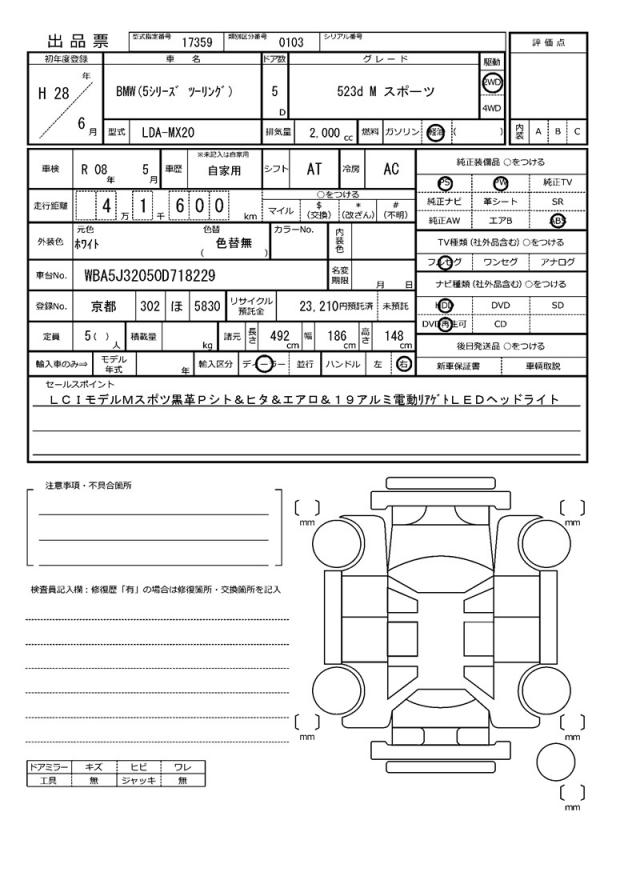 出品票 型式指定番号 17359 類別区分番号 0103 シリアル番号
評価点
初年度登録 車名 ドア数 グレード 駆動
H 28 年 6 月 BMW(5シリーズ ツーリング) 5 D 523d M スポーツ 2WD
4WD
型式 LDA-MX20 排気量 2,000 cc 燃料 ガソリン 軽油 ( )
内装 A B C
車検 R 08 年 5 月 車歴 ※未記入は自家用 自家用 シフト AT 冷房 AC
純正装備品 ○をつける
PS PW 純正TV
純正ナビ 革シート SR
純正AW エアB ABS
走行距離 4 万 1 千 6 0 0 km
○をつける
マイル $ (交換) * (改ざん) # (不明)
外装色 元色 ホワイト 色替 色替無 ( ) カラーNo. 内装色
TV種類 (社外品含む) ○をつける
フルセグ ワンセグ アナログ
車台No. WBA5J32050D718229 名変期限 月 日
ナビ種類 (社外品含む) ○をつける
HDD DVD SD
DVD再生可 CD
登録No. 京都 302 ほ 5830 リサイクル預託金 23,210円預託済 未預託
定員 5( ) 人 積載量 kg 諸元 長さ 492 cm 幅 186 cm 高さ 148 cm
後日発送品 ○をつける
新車保証書 車輌取説
輸入車のみ⇒ モデル年式 年 輸入区分 ディーラー 並行 ハンドル 左 右
セールスポイント
ＬＣＩモデルＭスポツ黒革Ｐシト＆ヒタ＆エアロ＆１９アルミ電動ﾘｱｹﾞﾄＬＥＤヘッドライト
注意事項・不具合箇所
mm
mm
検査員記入欄：修復歴「有」の場合は修復箇所・交換箇所を記入
mm
mm
ドアミラー キズ ヒビ ワレ
工具 無 ジャッキ 無
mm